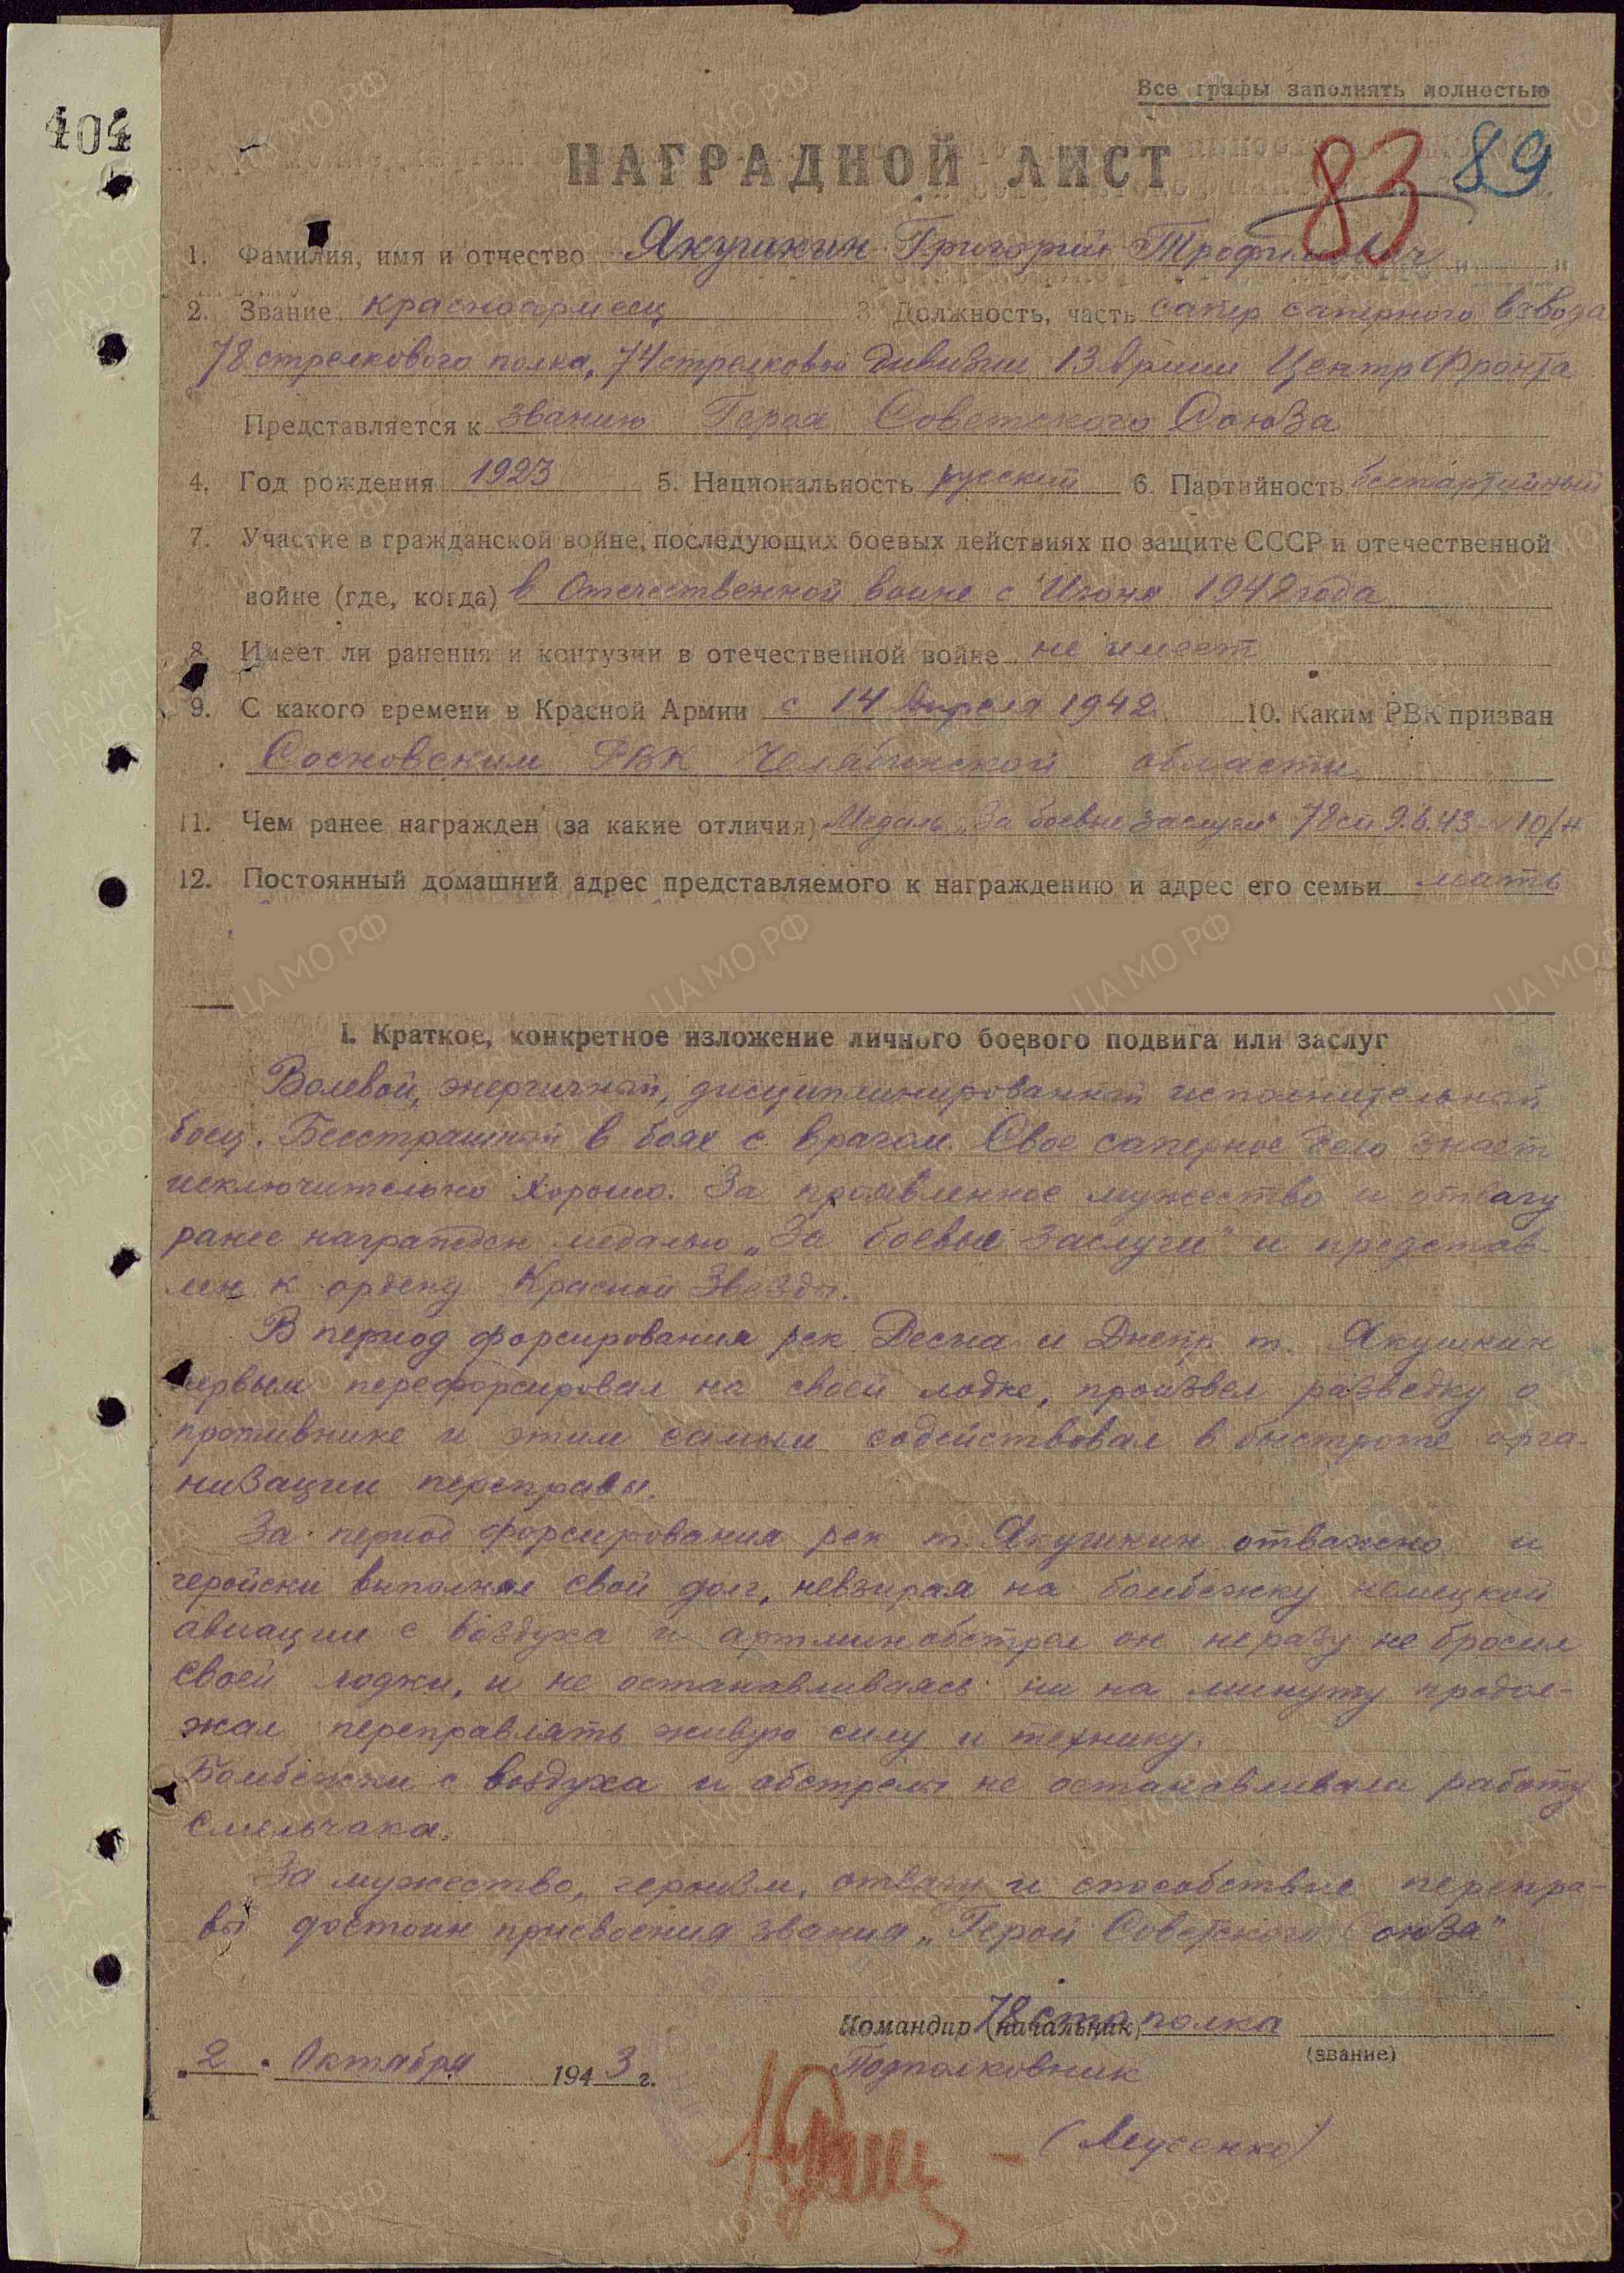 404
Все графы заполнять полностью
НАГРАДНОЙ ЛИСТ
83 89
1. Фамилия, имя и отчество Якушкин Григорий Трофимович
2. Звание красноармеец 3. Должность, часть сапер саперного взвода
78 стрелкового полка, 74 стрелковой дивизии 13 Армии Центр Фронта
Представляется к званию Героя Советского Союза
4. Год рождения 1923 5. Национальность русский 6. Партийность беспартийный
7. Участие в гражданской войне, последующих боевых действиях по защите СССР и отечественной
войне (где, когда) в Отечественной войне с Июня 1942 года
8. Имеет ли ранения и контузии в отечественной войне не имеет
9. С какого времени в Красной Армии с 14 Апреля 1942 10. Каким РВК призван
Сосновским РВК Челябинской области
11. Чем ранее награжден (за какие отличия) Медаль „За боевые заслуги" 78 сп 9.6.43 № 10/н
12. Постоянный домашний адрес представляемого к награждению и адрес его семьи мать
I. Краткое, конкретное изложение личного боевого подвига или заслуг
Волевой, энергичный, дисциплинированный исполнительный
боец. Бесстрашный в боях с врагом. Свое саперное дело знает
исключительно хорошо. За проявленное мужество и отвагу
ранее награжден медалью „За боевые заслуги" и представ-
лен к ордену Красной Звезды.
В период форсирования рек Десна и Днепр т. Якушкин
первым перефорсировал на своей лодке, произвел разведку о
противнике и этим самым содействовал в быстроте орга-
низации переправы.
За период форсирования рек т. Якушкин отважно и
геройски выполнял свой долг, невзирая на бомбежку немецкой
авиации с воздуха и артминобстрел он не разу не бросил
своей лодки, и не останавливаясь ни на минуту продол-
жал переправлять живую силу и технику.
Бомбежки с воздуха и обстрелы не останавливали работу
смельчака.
За мужество, героизм, отвагу и способствие перепра-
вы достоин присвоения звания „Герой Советского Союза"
Командир (начальник) 78 стр полка
(звание)
„2" Октября 1943 г. Подполковник
(Мусенко)